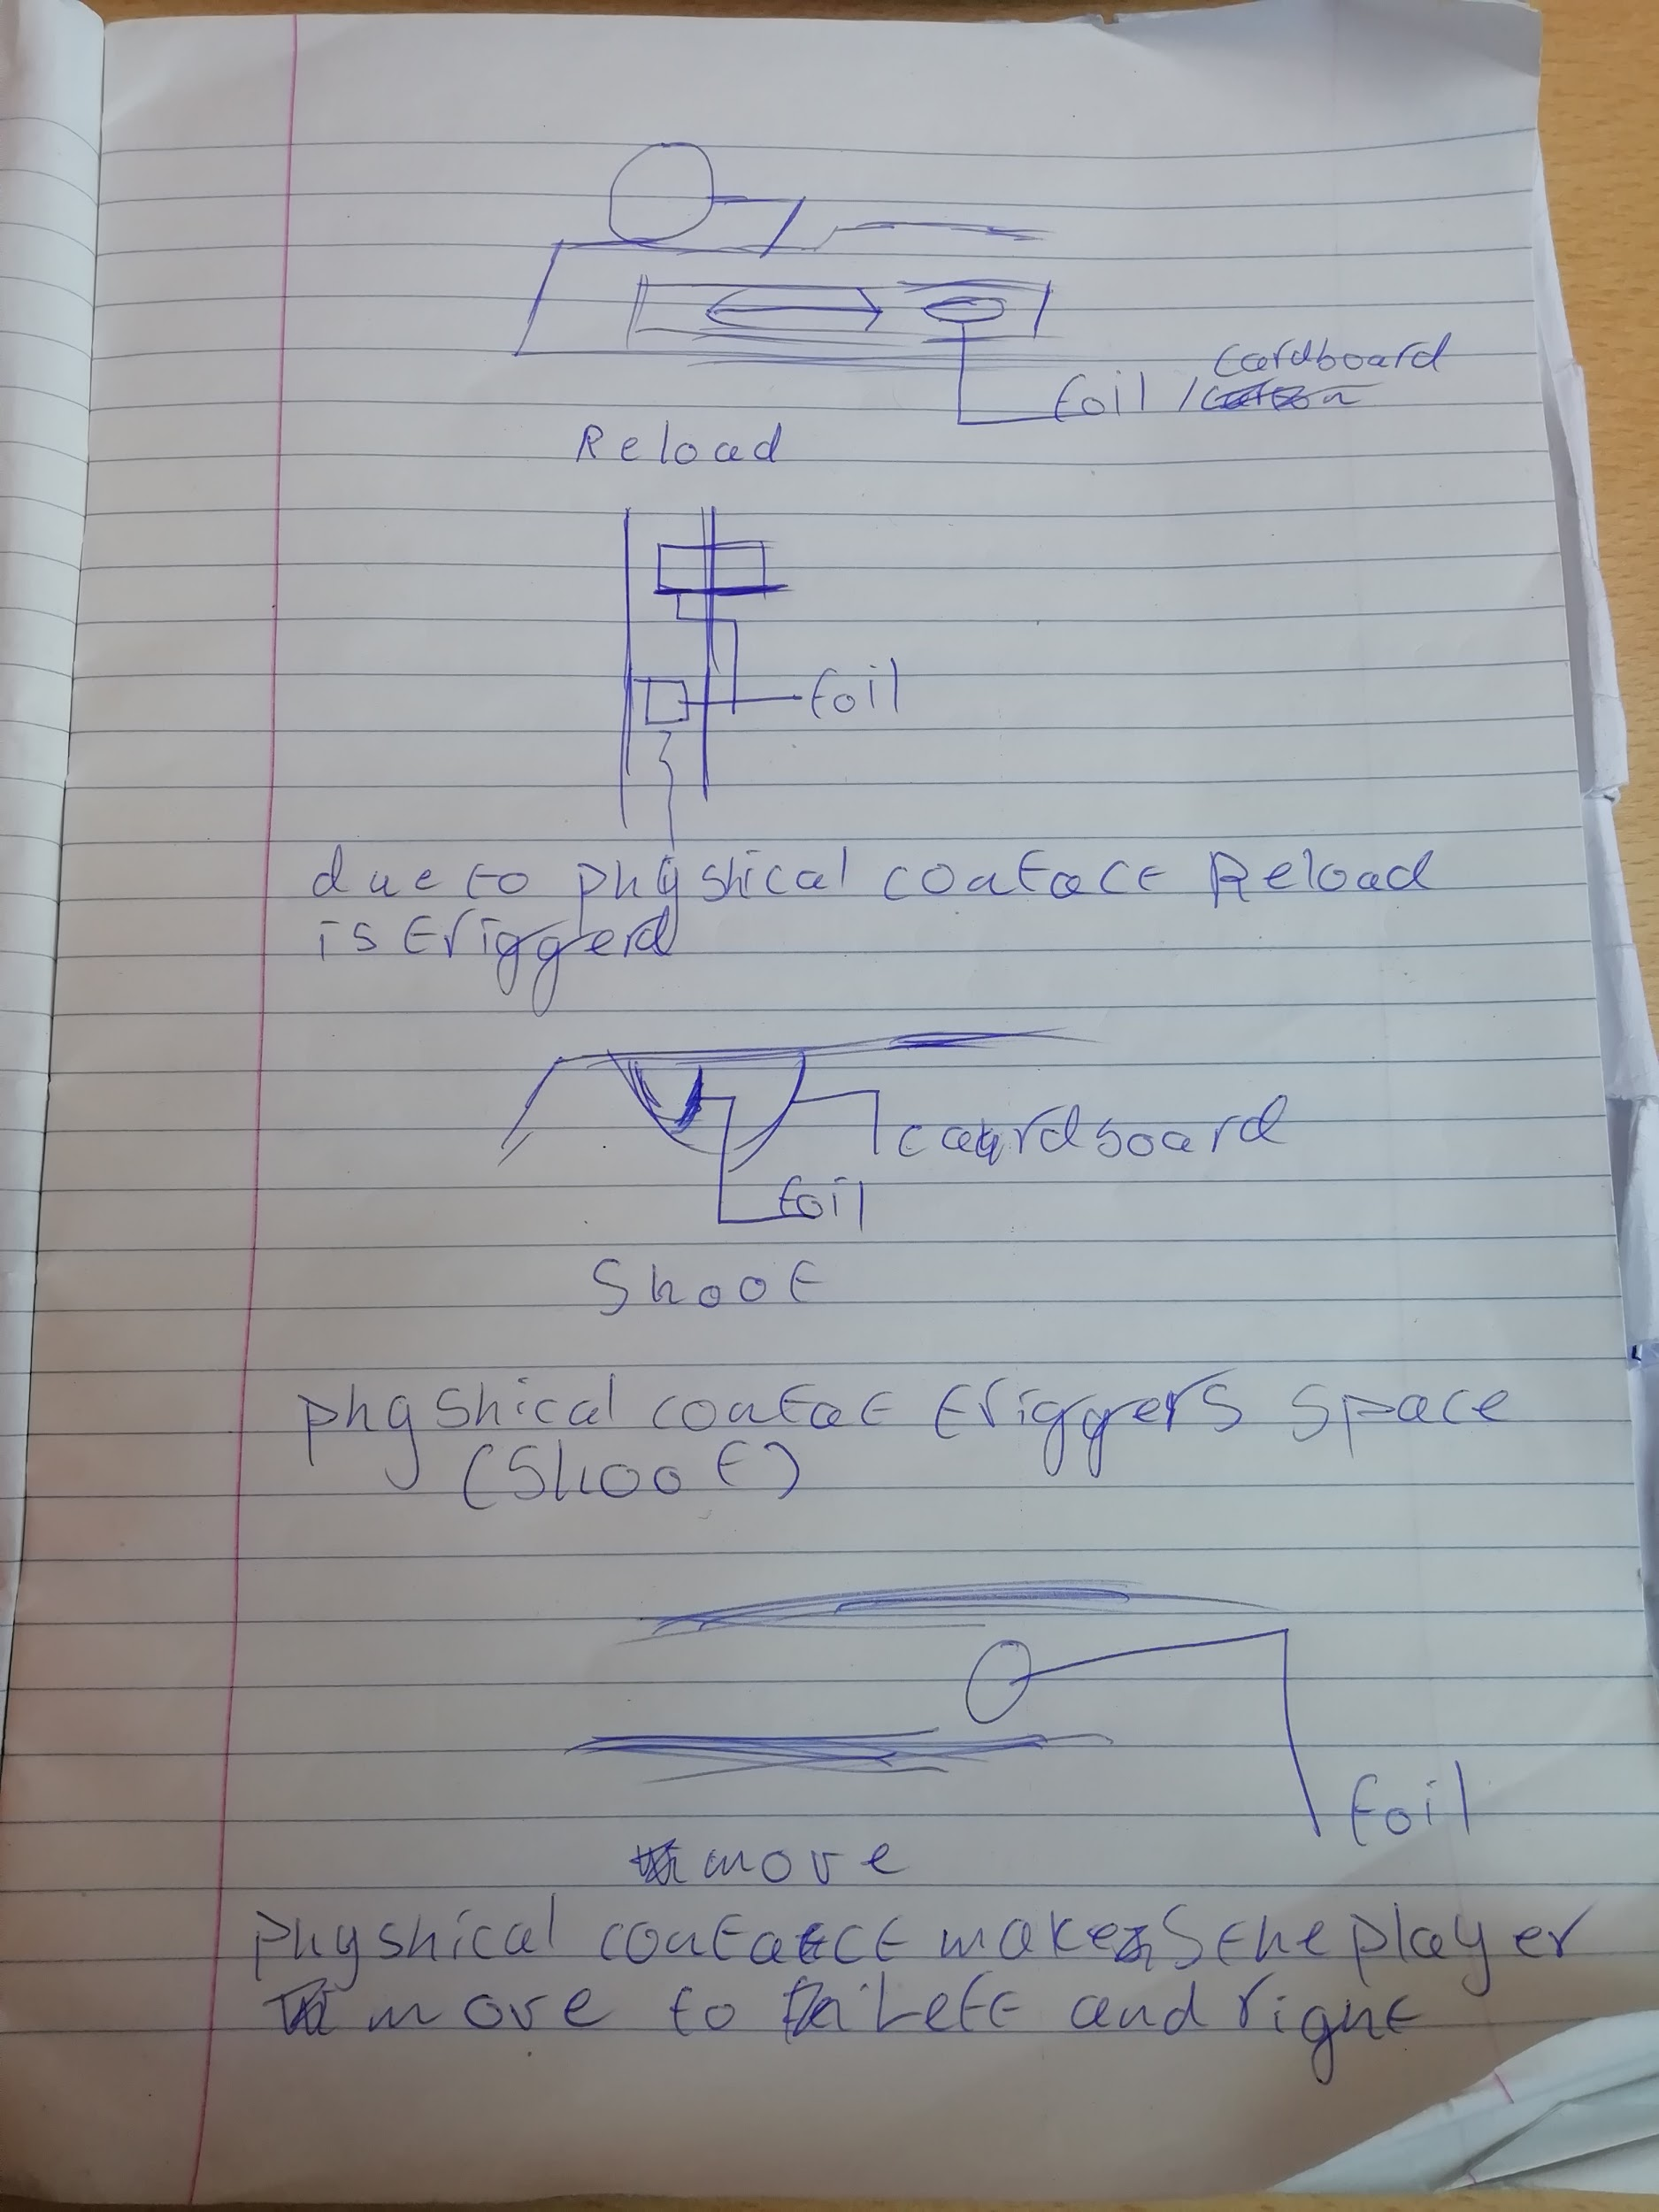 cardboard
foil /
Reload
foil
due to physhical contact Reload
is triggerd
caardboard
foil
Shoot
physhical contac triggers space
(Shoot)
foil
move
physhical contact makes the player
move to Left and right